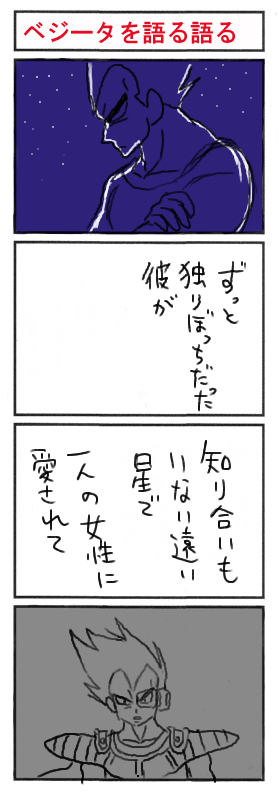 ベジータを語る語る
ずっと
独りぼっちだった
彼が
知り合いも
いない遠い
星で
一人の女性に
愛されて